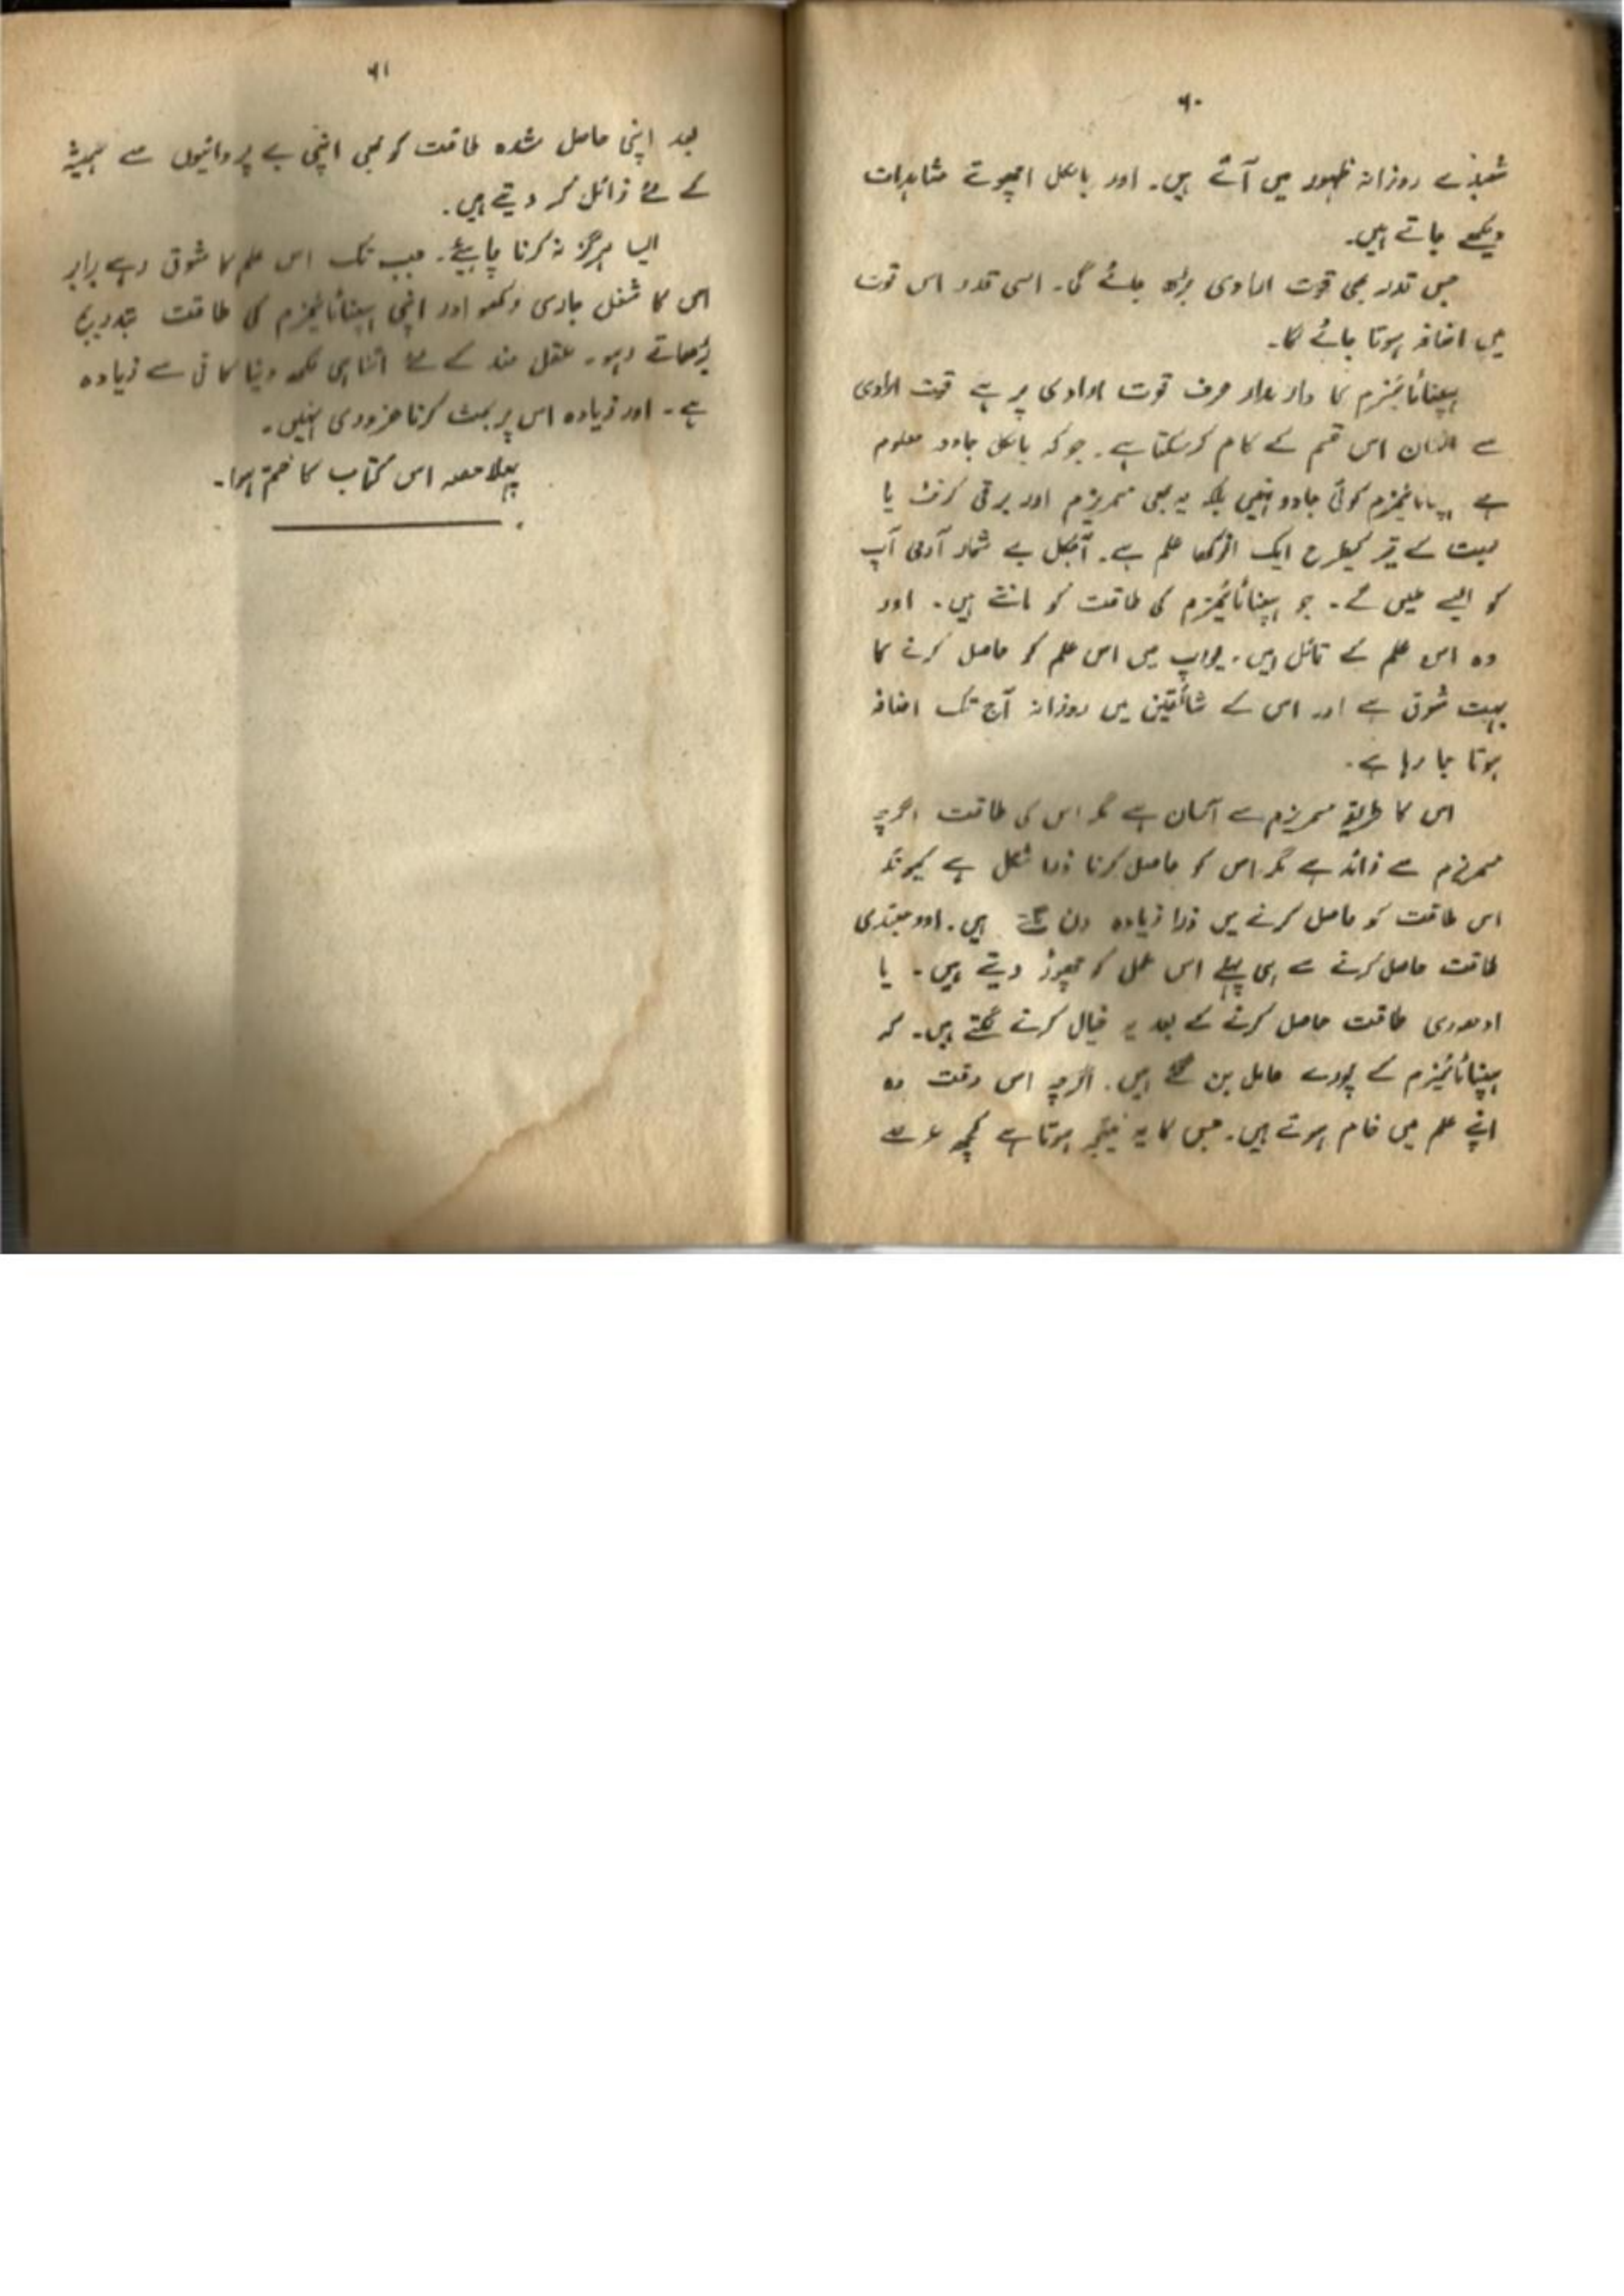 ۶۰
شعبدے روزانہ ظہور میں آتے ہیں۔ اور بالکل اچھوتے مشاہدات
دیکھے جاتے ہیں۔
جس قدر بھی قوت ارادی بڑھ جائے گی۔ اسی قدر اس قوت
میں اضافہ ہوتا جائے گا۔
ہپناٹائیزم کا دارومدار صرف قوت ارادی پر ہے قوت ارادی
سے انسان اس قسم کے کام کر سکتا ہے۔ جو کہ بالکل جادو معلوم
ہے ہپناٹائیزم کوئی جادو نہیں بلکہ یہ بھی مسمریزم اور برقی کرنٹ یا
محبت کے تیر کیطرح ایک انوکھا علم ہے۔ آجکل بے شمار آدمی آپ
کو ایسے ملیں گے۔ جو ہپناٹائیزم کی طاقت کو مانتے ہیں۔ اور
وہ اس علم کے قائل ہیں۔ یورپ میں اس علم کو حاصل کرنے کا
بہت شوق ہے اور اس کے شائقین میں روزانہ آج تک اضافہ
ہوتا جا رہا ہے۔
اس کا طریقہ مسمریزم سے آسان ہے مگر اس کی طاقت اگرچہ
مسمریزم سے زائد ہے مگر اس کو حاصل کرنا ذرا مشکل ہے کیونکہ
اس طاقت کو حاصل کرنے میں ذرا زیادہ دن لگتے ہیں۔ اور مبتدی
طاقت حاصل کرنے سے ہی پہلے اس عمل کو چھوڑ دیتے ہیں۔ یا
ادھوری طاقت حاصل کرنے کے بعد یہ خیال کرنے لگتے ہیں۔ کہ
ہپناٹائیزم کے پورے عامل بن گئے ہیں۔ اگرچہ اس وقت وہ
اپنے علم میں خام ہوتے ہیں۔ جس کا یہ نتیجہ ہوتا ہے کچھ عرصے
۶۱
بعد اپنی حاصل شدہ طاقت کو بھی اپنی بے پروائیوں سے ہمیشہ
کے لئے زائل کر دیتے ہیں۔
ایسا ہرگز نہ کرنا چاہیئے۔ جب تک اس علم کا شوق رہے برابر
اس کا شغل جاری رکھو اور اپنی ہپناٹائیزم کی طاقت بتدریج
بڑھاتے رہو۔ عقل مند کے لئے اتنا ہی لکھ دینا کافی سے زیادہ
ہے۔ اور زیادہ اس پر بحث کرنا ضروری نہیں۔
پہلا حصہ اس کتاب کا ختم ہوا۔